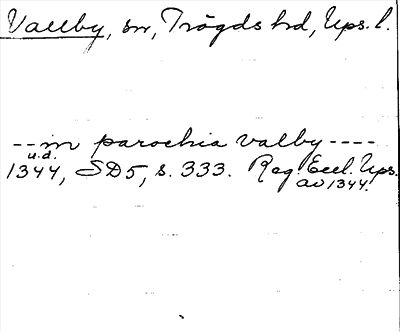 Vallby, sn, Trögds hd, Ups. l.
--in parochia valby----
u.d.
1344, SD5, s. 333. Reg. Eccl. Ups.
av 1344.